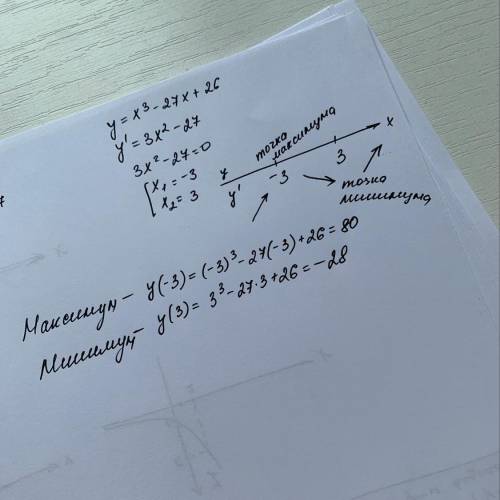 y = x³ - 27x + 26
y' = 3x² - 27
3x² - 27 = 0
x₁ = -3
x₂ = 3
точка
максимума
y
y'
-3
3
x
точка
минимума
Максимум - y(-3) = (-3)³ - 27(-3) + 26 = 80
Минимум - y(3) = 3³ - 27·3 + 26 = -28